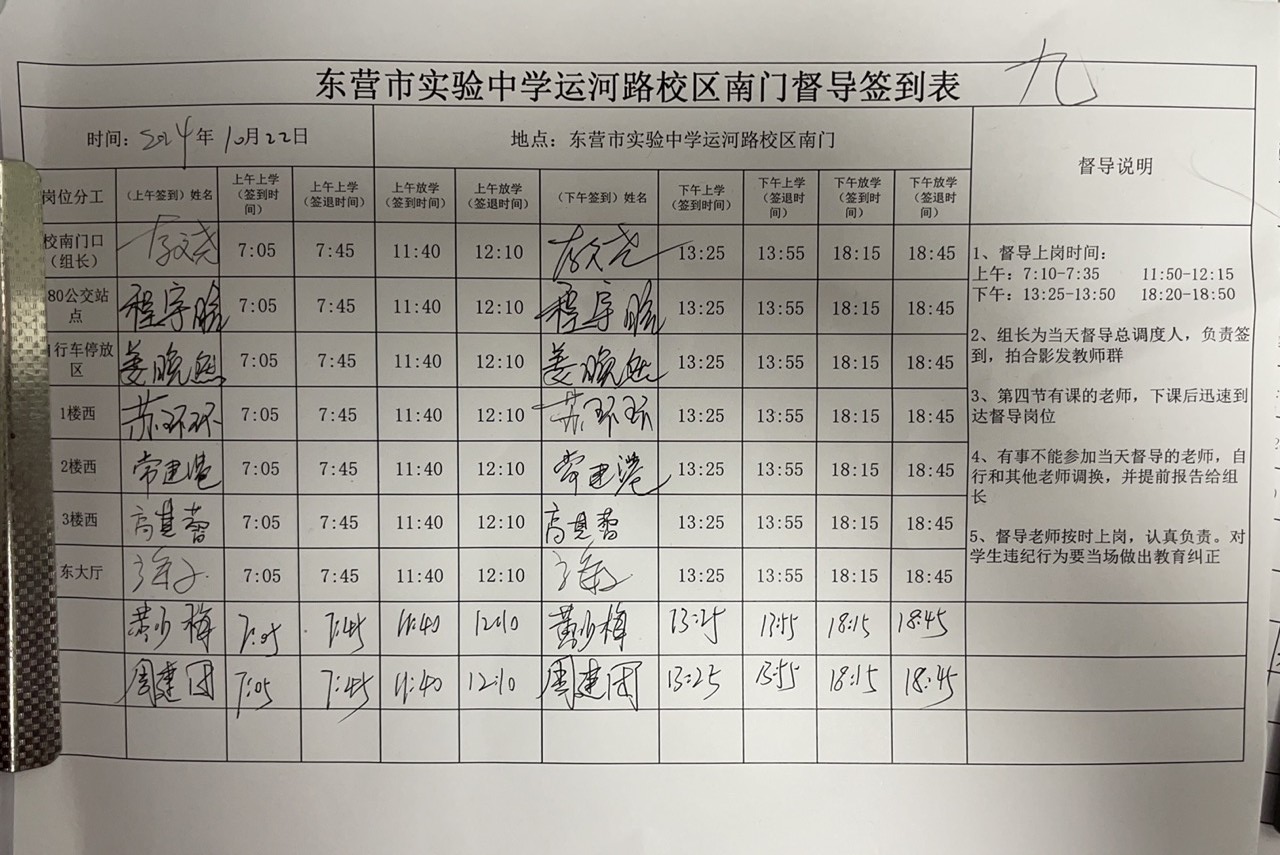 九
东营市实验中学运河路校区南门督导签到表
时间：2024年10月22日 地点：东营市实验中学运河路校区南门 督导说明
岗位分工 （上午签到）姓名 上午上学（签到时间） 上午上学（签退时间） 上午放学（签到时间） 上午放学（签退时间） （下午签到）姓名 下午上学（签到时间） 下午上学（签退时间） 下午放学（签到时间） 下午放学（签退时间）
校南门口（组长） 7:05 7:45 11:40 12:10 13:25 13:55 18:15 18:45
80公交站点 程宇晗 7:05 7:45 11:40 12:10 程宇晗 13:25 13:55 18:15 18:45
自行车停放区 姜晓燕 7:05 7:45 11:40 12:10 姜晓燕 13:25 13:55 18:15 18:45
1楼西 苏环环 7:05 7:45 11:40 12:10 苏环环 13:25 13:55 18:15 18:45
2楼西 常建港 7:05 7:45 11:40 12:10 常建港 13:25 13:55 18:15 18:45
3楼西 高其蓉 7:05 7:45 11:40 12:10 高其蓉 13:25 13:55 18:15 18:45
东大厅 7:05 7:45 11:40 12:10 13:25 13:55 18:15 18:45
黄少梅 7:05 7:45 11:40 12:10 黄少梅 13:25 13:55 18:15 18:45
周建国 7:05 7:45 11:40 12:10 周建国 13:25 13:55 18:15 18:45
1、督导上岗时间：
上午：7:10-7:35 11:50-12:15
下午：13:25-13:50 18:20-18:50
2、组长为当天督导总调度人，负责签
到，拍合影发教师群
3、第四节有课的老师，下课后迅速到
达督导岗位
4、有事不能参加当天督导的老师，自
行和其他老师调换，并提前报告给组
长
5、督导老师按时上岗，认真负责。对
学生违纪行为要当场做出教育纠正